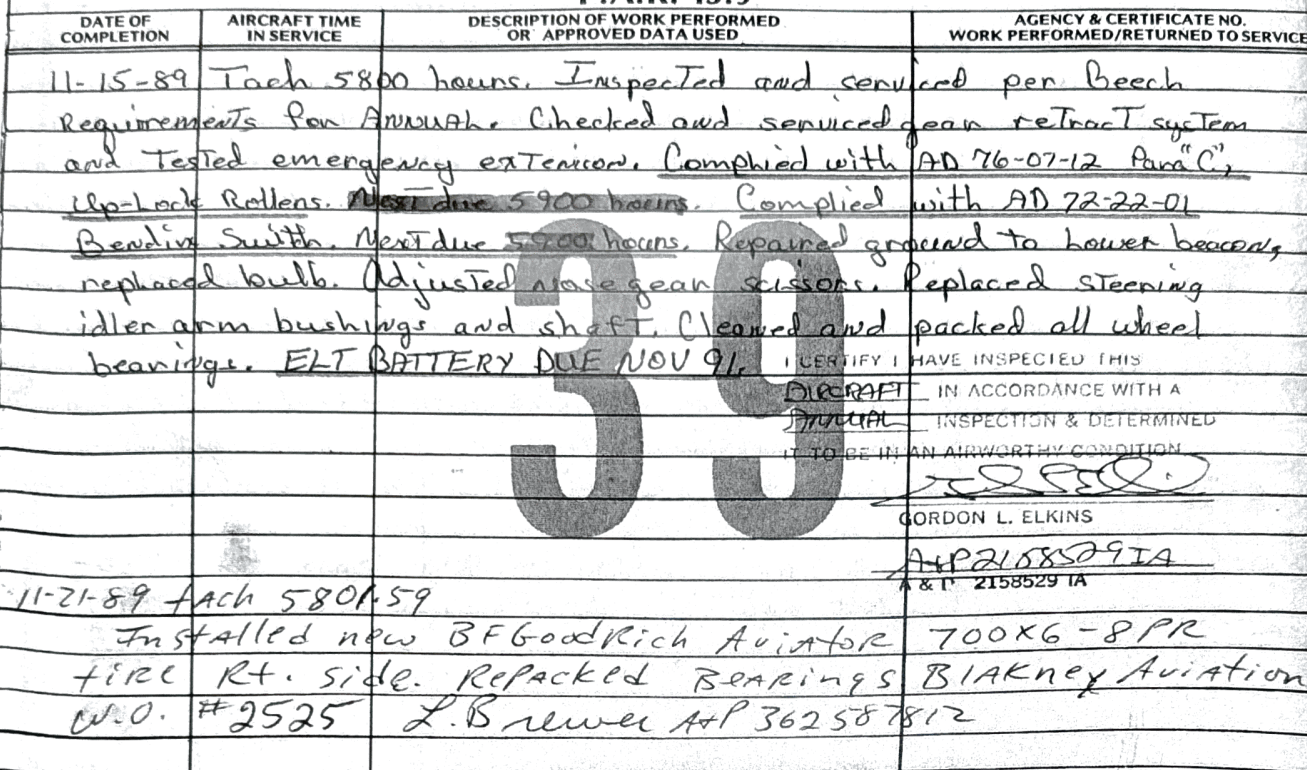 DATE OF COMPLETION
AIRCRAFT TIME IN SERVICE
DESCRIPTION OF WORK PERFORMED OR APPROVED DATA USED
AGENCY & CERTIFICATE NO. WORK PERFORMED/RETURNED TO SERVICE
11-15-89 Tach 5800 hours. Inspected and serviced per Beech
Requirements for Annual. Checked and serviced gear retract system
and Tested emergency extenion. Complied with AD 76-07-12 Para "C",
Up-Lock Rollers. Next due 5900 hours. Complied with AD 72-22-01
Bendix Swith. Next due 5900 hours. Repaired ground to lower beacon,
replaced bulb. Adjusted nose gear scissors. Replaced steering
idler arm bushings and shaft. Cleaned and packed all wheel
bearings. ELT BATTERY DUE NOV 91.
I CERTIFY I HAVE INSPECTED THIS
AIRCRAFT IN ACCORDANCE WITH A
ANNUAL INSPECTION & DETERMINED
IT TO BE IN AN AIRWORTHY CONDITION
GORDON L. ELKINS
A+P2158529IA
A & P 2158529 IA
39
11-21-89 tach 5801.59
Installed new BFGoodRich Aviator 700X6-8PR
tire Rt. side. Repacked Bearings Blakney Aviation
W.O. #2525 L. Brewer A+P 362587812